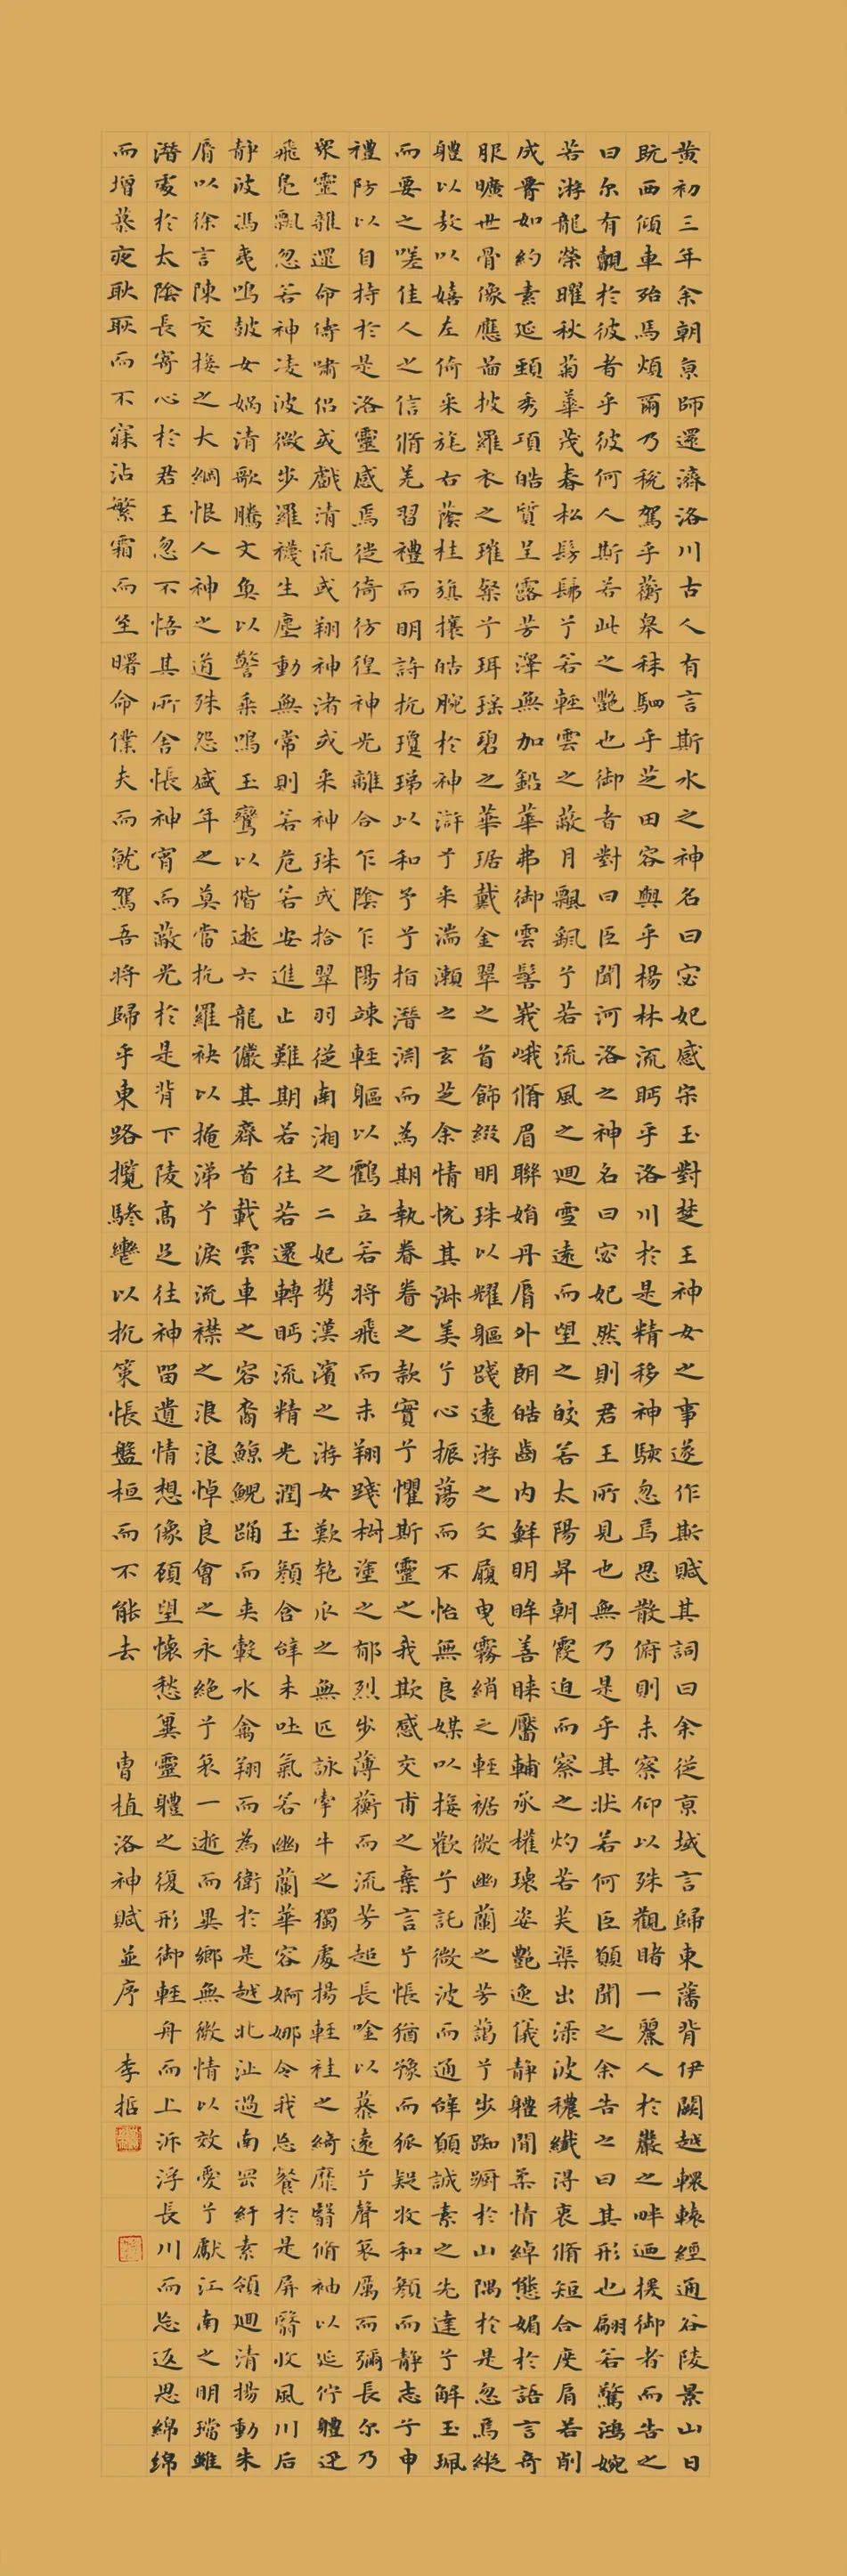 黄初三年余朝京師還濟洛川古人有言斯水之神名曰宓妃感宋玉對楚王神女之事遂作斯賦其詞曰余從京域言歸東藩背伊闕越轘轅經通谷陵景山日
既西傾車殆馬煩爾乃稅駕乎蘅皋秣駟乎芝田容與乎楊林流眄乎洛川於是精移神駭忽焉思散俯則未察仰以殊觀睹一麗人於巖之畔迺援御者而告之
曰尔有覿於彼者乎彼何人斯若此之艷也御者對曰臣聞河洛之神名曰宓妃然則君王所見也無乃是乎其狀若何臣願聞之余告之曰其形也翩若驚鴻婉
若游龍榮曜秋菊華茂春松髣髴兮若輕雲之蔽月飄飖兮若流風之迴雪遠而望之皎若太陽昇朝霞迫而察之灼若芙渠出淥波穠纖得衷脩短合度肩若削
成腰如約素延頸秀項皓質呈露芳澤無加鉛華弗御雲髻峩峨脩眉聯娟丹脣外朗皓齒內鮮明眸善睞靨輔承權瓌姿艷逸儀靜體閒柔情綽態媚於語言奇
服曠世骨像應圖披羅衣之璀粲兮珥瑤碧之華琚戴金翠之首飾綴明珠以耀軀踐遠游之文履曳霧綃之輕裾微幽蘭之芳藹兮步踟躕於山隅於是忽焉縱
體以敖以嬉左倚采旄右蔭桂旗攘皓腕於神滸兮采湍瀨之玄芝余情悅其淑美兮心振蕩而不怡無良媒以接歡兮託微波而通辭願誠素之先達兮解玉珮
而要之嗟佳人之信脩羌習禮而明詩抗瓊珶以和予兮指潛淵而為期執眷眷之款實兮懼斯靈之我欺感交甫之棄言兮悵猶豫而狐疑收和顏而靜志兮申
禮防以自持於是洛靈感焉徙倚彷徨神光離合乍陰乍陽竦輕軀以鶴立若將飛而未翔踐椒塗之郁烈步薄蘅而流芳超長唫以慕遠兮聲哀厲而彌長尔乃
眾靈雜遝命儔嘯侶或戲清流或翔神渚或采神珠或拾翠羽從南湘之二妃攜漢濱之游女歎匏瓜之無匹詠牽牛之獨處揚輕袿之綺靡翳脩袖以延佇體迅
飛鳧飄忽若神凌波微步羅襪生塵動無常則若危若安進止難期若往若還轉眄流精光潤玉顏含辭未吐氣若幽蘭華容婀娜令我忘餐於是屏翳收風川后
靜波馮夷鳴鼓女媧清歌騰文魚以警乘鳴玉鸞以偕逝六龍儼其齊首載雲車之容裔鯨鯢踊而夾轂水禽翔而為衛於是越北沚過南岡紆素領迴清揚動朱
脣以徐言陳交接之大綱恨人神之道殊怨盛年之莫當抗羅袂以掩涕兮淚流襟之浪浪悼良會之永絕兮哀一逝而異鄉無微情以效愛兮獻江南之明璫雖
潛處於太陰長寄心於君王忽不悟其所舍悵神宵而蔽光於是背下陵高足往神留遺情想像顧望懷愁冀靈體之復形御輕舟而上泝浮長川而忘返思綿綿
而增慕夜耿耿而不寐沾繁霜而至曙命僕夫而就駕吾將歸乎東路攬騑轡以抗策悵盤桓而不能去 曹植洛神賦並序 李哲